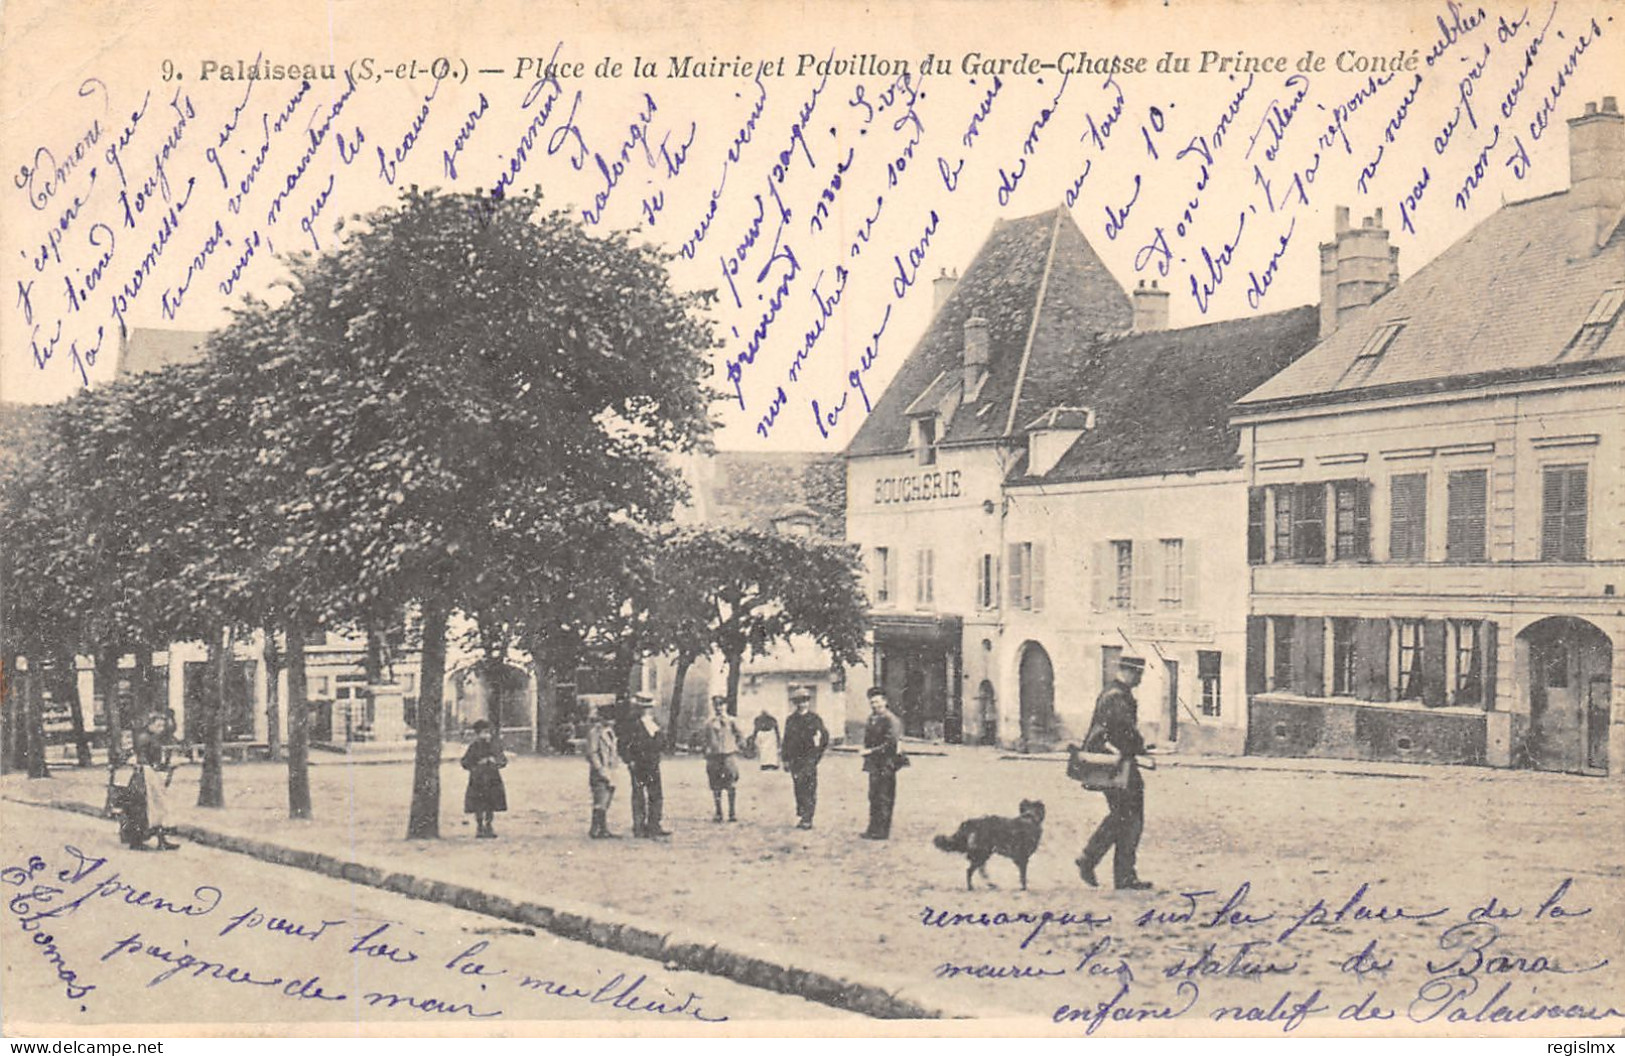 9. Palaiseau (S,-et-O.) — Place de la Mairie et Pavillon du Garde-Chasse du Prince de Condé
Edmond
j'espère que
tu tiend toujours
ta promesse que
tu vas venir nous
voir, maintenant
que les
beaux
jours
viennent
et
ralonges
si tu
veux venir
pour paque
prévient moi. S.v.P.
nos maitre ne sont
la que dans le mois
de mai
au tour
du 10.
et on est moin
libre, j'attend
donc ta réponse
ne nous oublies
pas au près de
mon cousin
et cousines.
BOUCHERIE
remarque sur la place de la
mairie la statue de Bara
enfand natif de Palaiseau
et prend pour toi la meilleure
poignee de main
E. Thomas.
regislmx